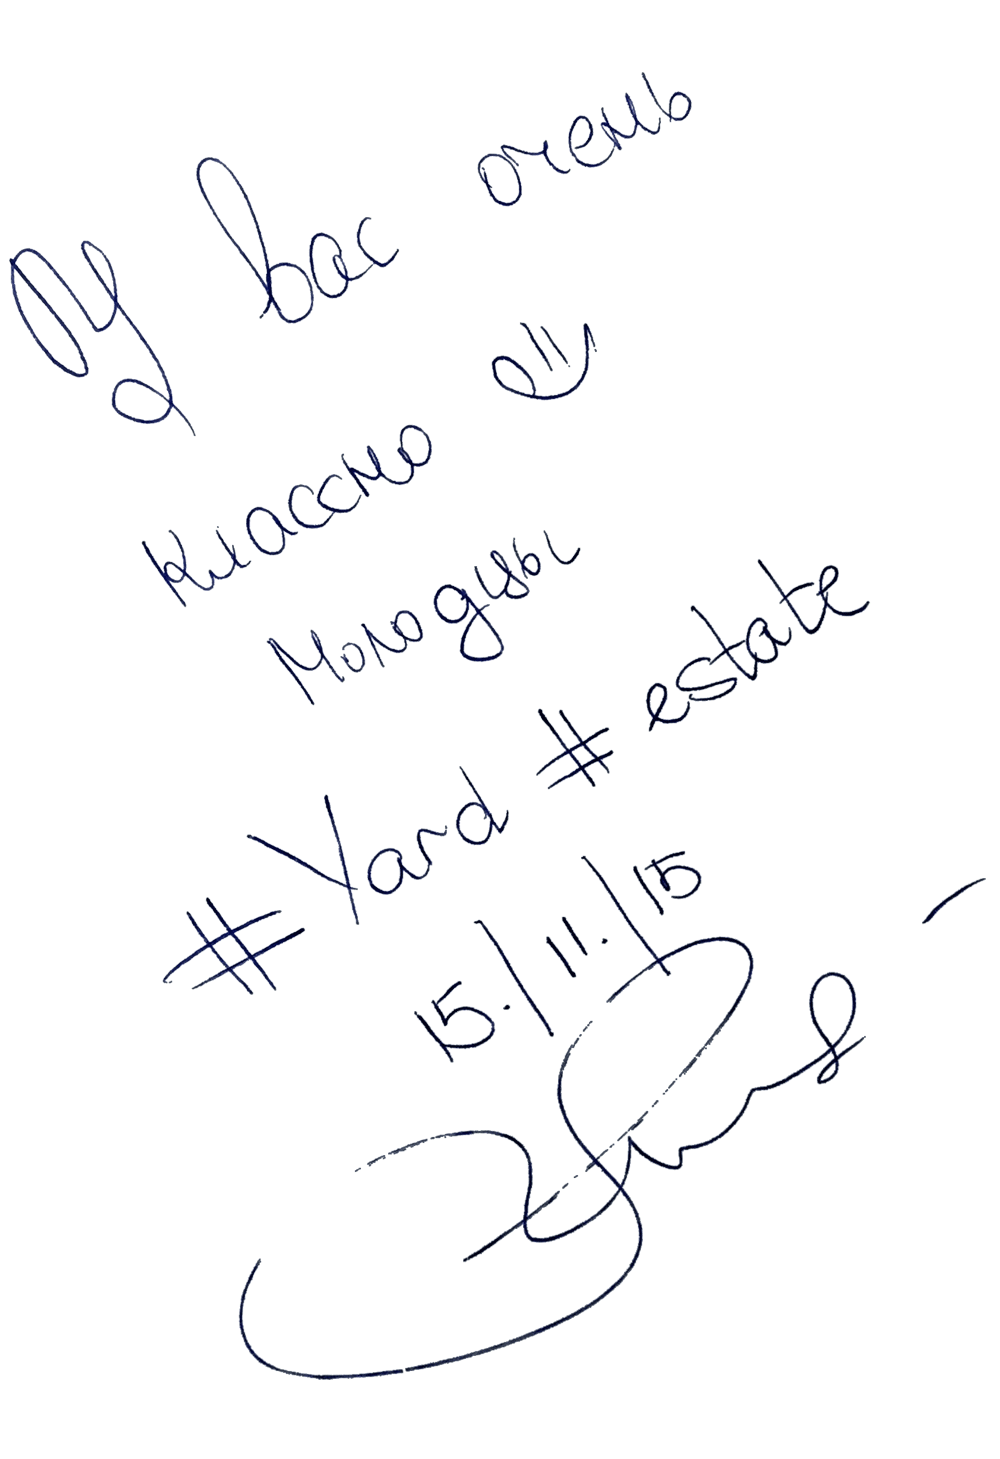 У вас очень
классно
Молодцы
# Yard # estate
15./11./15